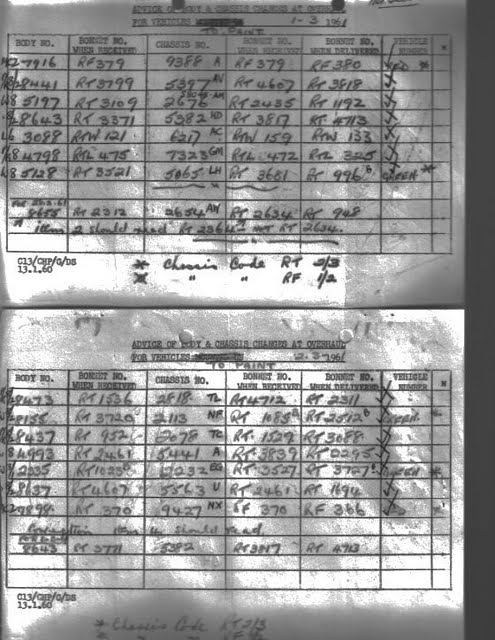 ADVICE OF BODY & CHASSIS CHANGES AT OVERHAUL
FOR VEHICLES 1-3 1961
TO PAINT
BODY NO. BONNET NO. WHEN RECEIVED CHASSIS NO. BONNET NO. WHEN RECEIVED BONNET NO. WHEN DELIVERED VEHICLE NUMBER *
7916 RF 379 9388 A RF 379 RF 380
8441 RT 3799 5397 AV RT 4607 RT 3818
5197 RT 3109 2676 AM RT 2435 RT 1192
8643 RT 3371 5382 HD RT 3817 RT 4713
3088 RTW 121 6217 AC RTW 159 RTW 133
4798 RTL 475 7323 GM RTL 472 RTL 325
5128 RT 3521 5065 LH RT 3681 RT 996 B GREEN *
8655 RT 2312 2654 AW RT 2634 RT 948
item 2 should read RT 2364 NOT RT 2634.
C13/CHP/G/DS
13.1.60
* Chassis Code RT 2/3
* " " RF 1/2
ADVICE OF BODY & CHASSIS CHANGES AT OVERHAUL
FOR VEHICLES 2.3 1961
TO PAINT
BODY NO. BONNET NO. WHEN RECEIVED CHASSIS NO. BONNET NO. WHEN RECEIVED BONNET NO. WHEN DELIVERED VEHICLE NUMBER *
8473 RT 1536 2818 TL RT 4712 RT 2311
8155 RT 3720 2113 NR RT 1085 RT 2512 B GREEN *
8437 RT 952 2078 TC RT 1529 RT 3088
4993 RT 2461 5441 A RT 3839 RT 0295
2035 RT 1023 B EG RT 3527 RT 3727 GREEN *
8637 RT 4607 5563 U RT 2461 RT 1694
7898 RF 370 9427 NX RF 370 RF 366
Correction item 4 should read
8643 RT 3771 5382 RT 3817 RT 4713
C13/CHP/G/DS
13.1.60
* Chassis Code RT 2/3